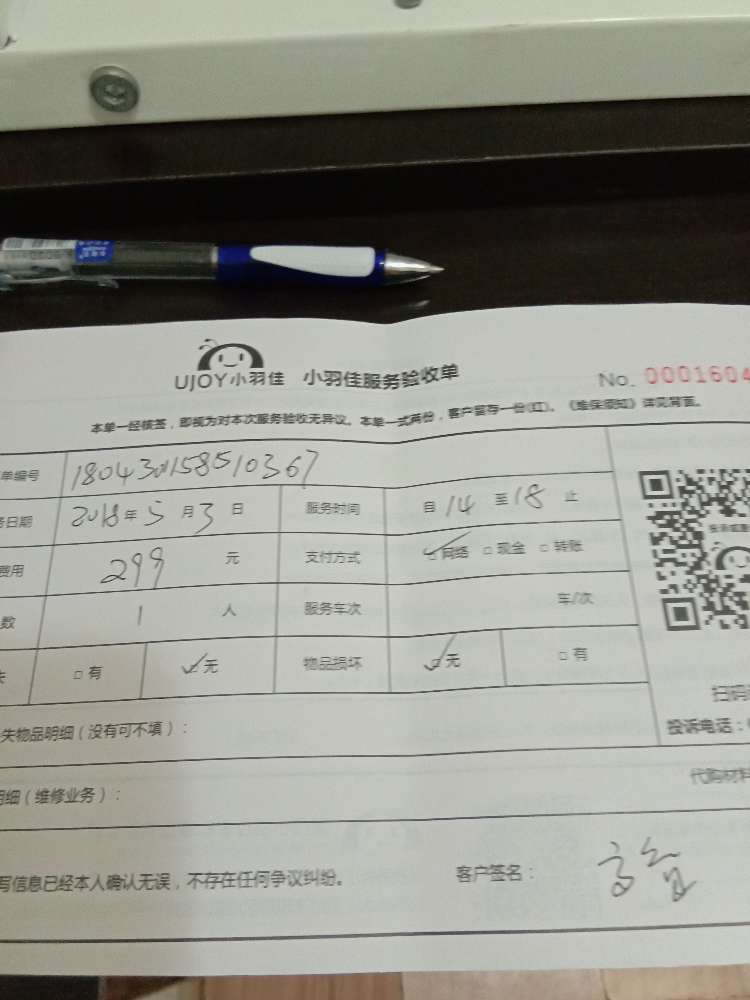 UJOY小羽佳 小羽佳服务验收单 No. 0001604
本单一经核签，即视为对本次服务验收无异议。本单一式两份，客户留存一份(红)。《维保须知》详见背面。
单编号 180430158510367
务日期 2018年5月3日 服务时间 自14至18止
费用 299元 支付方式 网络 现金 转账
数 1人 服务车次 车/次
失 有 无 物品损坏 无 有
扫码
失物品明细（没有可不填）： 投诉电话：
明细（维修业务）： 代购材料
写信息已经本人确认无误，不存在任何争议纠纷。 客户签名：